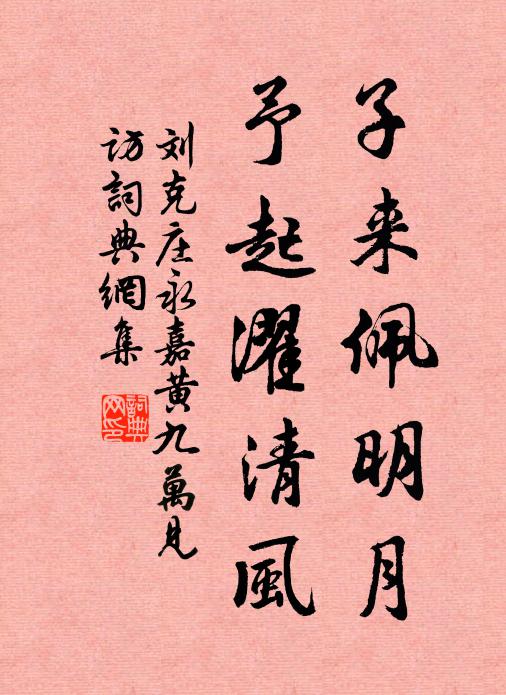 子来佩明月
予起濯清風
刘克庄永嘉黄九萬見
访詞典網集
詞典网印